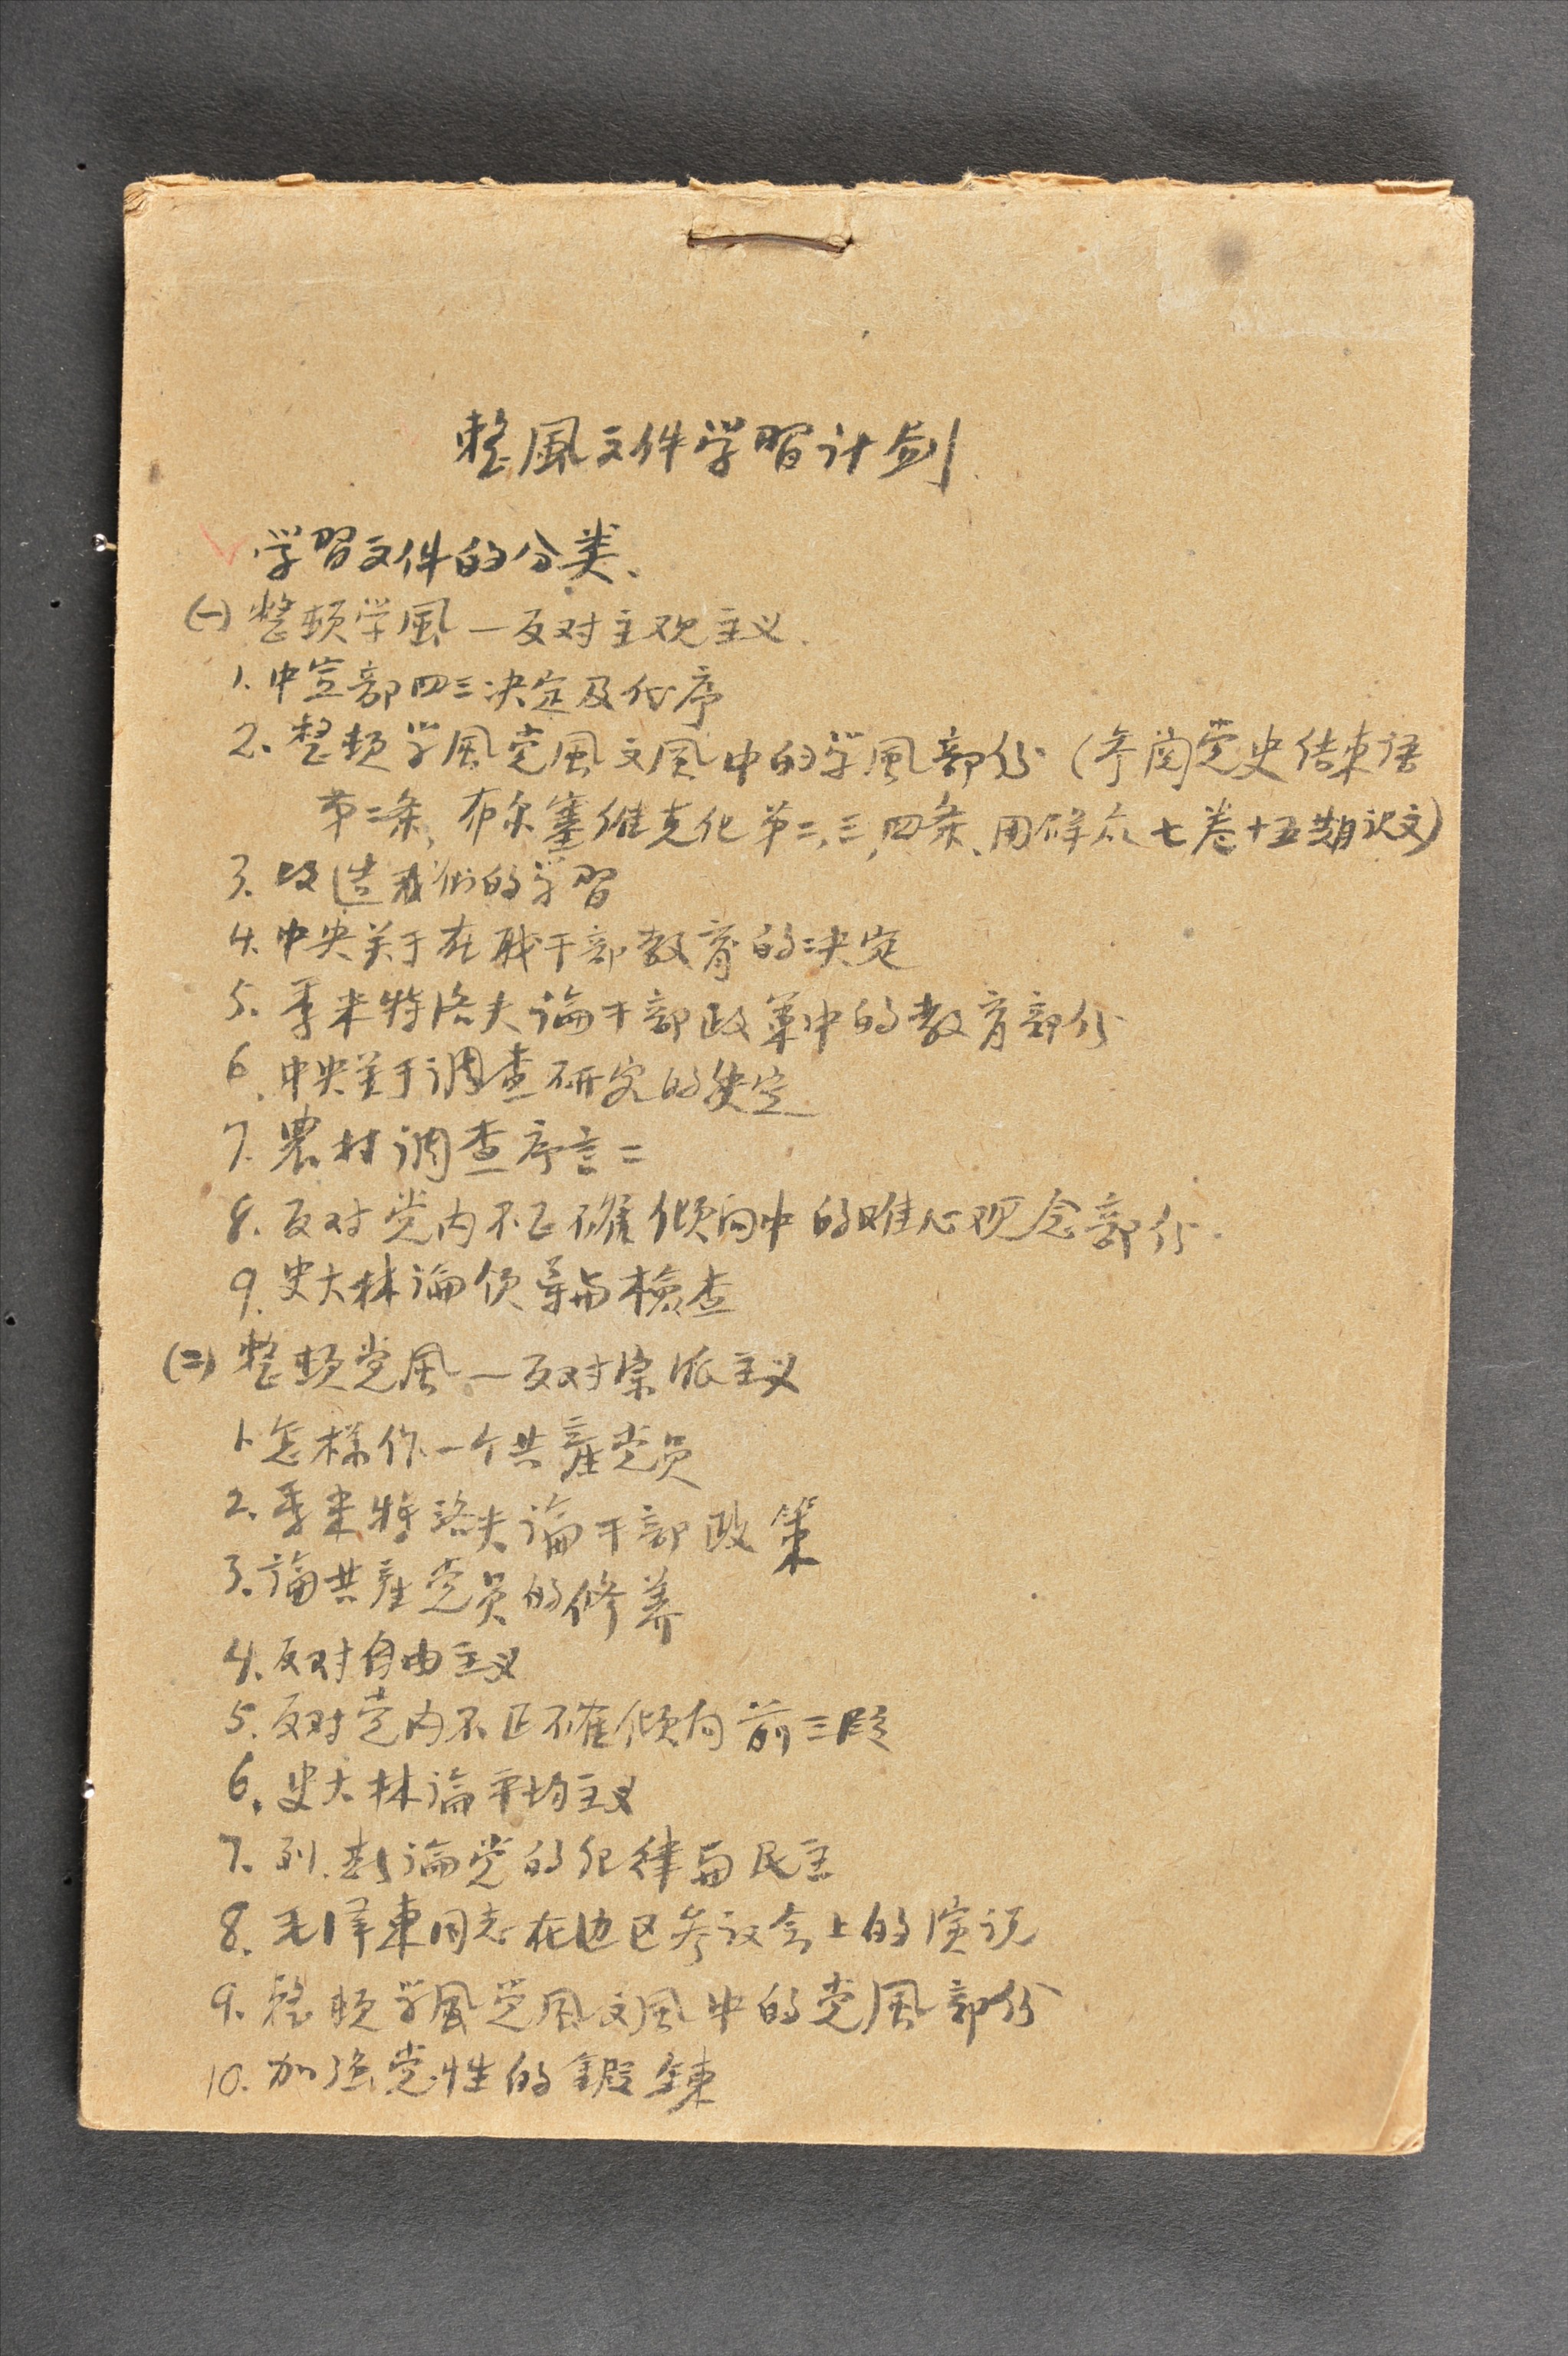 整風文件学習计划
学習文件的分类、
(一) 整頓学風—反对主观主义.
1. 中宣部四三决定及代序
2. 整頓学風党風文風中的学風部份 (参阅党史结束语
第二条, 布尔塞维克化第二,三,四条、用群众七卷十五期 文)
3. 改造我们的学習
4. 中央关于在職干部教育的决定
5. 季米特洛夫論干部政策中的教育部份
6. 中央关于调查研究的决定
7. 農村调查序言二
8. 反对党内不正确傾向中的唯心观念部份.
9. 史大林論领导与檢查
(二) 整頓党風—反对宗派主义
1. 怎樣作一个共產党员
2. 季米特洛夫論干部政策
3. 論共產党员的修养
4. 反对自由主义
5. 反对党内不正确傾向前三段
6. 史大林論平均主义
7. 列.斯論党的纪律与民主
8. 毛澤東同志在边区参议会上的演说
9. 整頓学風党風文風中的党風部份
10. 加强党性的鍛鍊